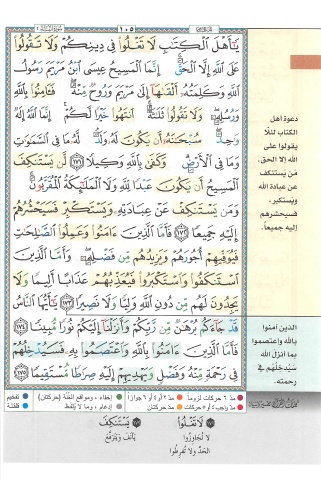 ١٠٥
يَٰٓأَهْلَ ٱلْكِتَٰبِ لَا تَغْلُوا۟ فِى دِينِكُمْ وَلَا تَقُولُوا۟
عَلَى ٱللَّهِ إِلَّا ٱلْحَقَّ ۚ إِنَّمَا ٱلْمَسِيحُ عِيسَى ٱبْنُ مَرْيَمَ رَسُولُ
ٱللَّهِ وَكَلِمَتُهُۥٓ أَلْقَىٰهَآ إِلَىٰ مَرْيَمَ وَرُوحٌ مِّنْهُ ۖ فَـَٔامِنُوا۟ بِٱللَّهِ
وَرُسُلِهِۦ ۖ وَلَا تَقُولُوا۟ ثَلَٰثَةٌ ۚ ٱنتَهُوا۟ خَيْرًا لَّكُمْ ۚ إِنَّمَا ٱللَّهُ إِلَٰهٌ
وَٰحِدٌ ۖ سُبْحَٰنَهُۥٓ أَن يَكُونَ لَهُۥ وَلَدٌ ۘ لَّهُۥ مَا فِى ٱلسَّمَٰوَٰتِ
وَمَا فِى ٱلْأَرْضِ ۗ وَكَفَىٰ بِٱللَّهِ وَكِيلًا ﴿١٧١﴾ لَّن يَسْتَنكِفَ
ٱلْمَسِيحُ أَن يَكُونَ عَبْدًا لِّلَّهِ وَلَا ٱلْمَلَٰٓئِكَةُ ٱلْمُقَرَّبُونَ ۚ
وَمَن يَسْتَنكِفْ عَنْ عِبَادَتِهِۦ وَيَسْتَكْبِرْ فَسَيَحْشُرُهُمْ
إِلَيْهِ جَمِيعًا ﴿١٧٢﴾ فَأَمَّا ٱلَّذِينَ ءَامَنُوا۟ وَعَمِلُوا۟ ٱلصَّٰلِحَٰتِ
فَيُوَفِّيهِمْ أُجُورَهُمْ وَيَزِيدُهُم مِّن فَضْلِهِۦ ۖ وَأَمَّا ٱلَّذِينَ
ٱسْتَنكَفُوا۟ وَٱسْتَكْبَرُوا۟ فَيُعَذِّبُهُمْ عَذَابًا أَلِيمًا وَلَا
يَجِدُونَ لَهُم مِّن دُونِ ٱللَّهِ وَلِيًّا وَلَا نَصِيرًا ﴿١٧٣﴾ يَٰٓأَيُّهَا ٱلنَّاسُ
قَدْ جَآءَكُم بُرْهَٰنٌ مِّن رَّبِّكُمْ وَأَنزَلْنَآ إِلَيْكُمْ نُورًا مُّبِينًا ﴿١٧٤﴾
فَأَمَّا ٱلَّذِينَ ءَامَنُوا۟ بِٱللَّهِ وَٱعْتَصَمُوا۟ بِهِۦ فَسَيُدْخِلُهُمْ
فِى رَحْمَةٍ مِّنْهُ وَفَضْلٍ وَيَهْدِيهِمْ إِلَيْهِ صِرَٰطًا مُّسْتَقِيمًا ﴿١٧٥﴾
دعوة أهل
الكتاب لئلّا
يقولوا على
الله إلا الحق،
من يستنكف
عن عبادة الله
ويستكبر،
فسيحشرهم
إليه جميعاً.
الذين آمنوا
بالله واعتصموا
بما أنزل الله
سيدخلهم في
رحمته.
مدّ ٦ حركات لزوماً مدّ ٢ أو ٤ أو ٦ جوازاً إخفاء، ومواقع الغُنَّة (حركتان) تفخيم
مدّ واجب ٤ أو ٥ حركات مدّ حركتان إدغام، وما لا يُلفظ قلقلة
لَا تَغْلُوا يَسْتَنكِفَ
لا تجاوزوا يأنف ويترفّع
الحدّ ولا تفرطوا